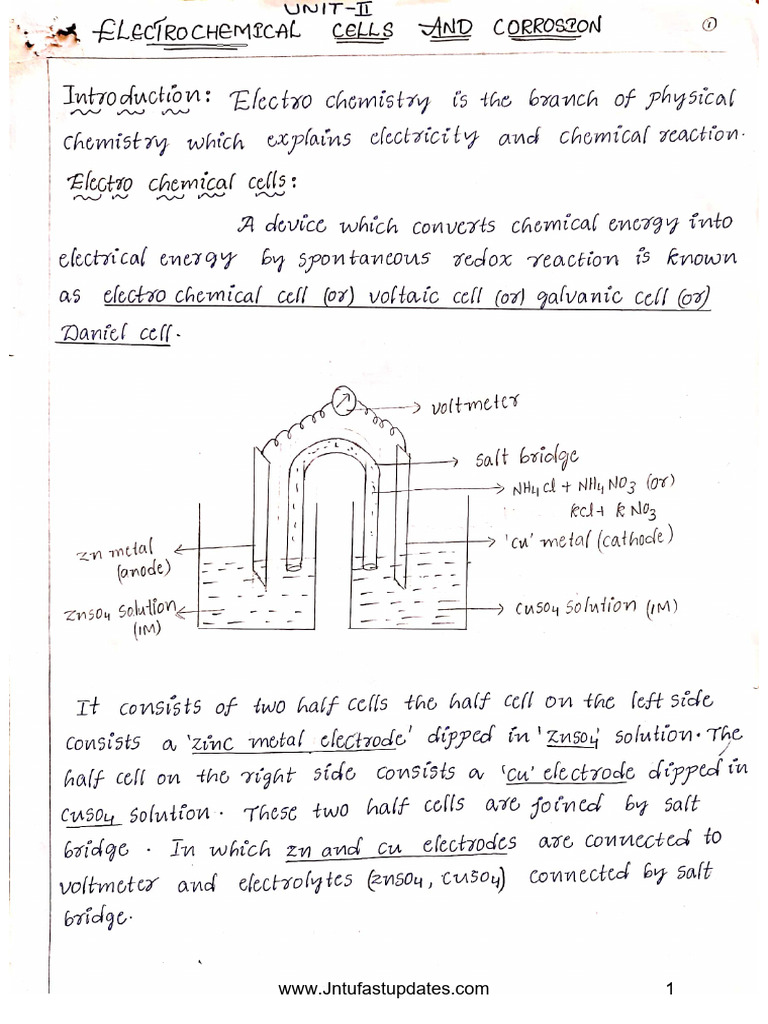 UNIT-II
ELECTROCHEMICAL CELLS AND CORROSION
1
Introduction: Electro chemistry is the branch of physical
chemistry which explains electricity and chemical reaction.
Electro chemical cells:
A device which converts chemical energy into
electrical energy by spontaneous redox reaction is known
as electro chemical cell (or) voltaic cell (or) galvanic cell (or)
Daniel cell.
voltmeter
salt bridge
NH4cl + NH4NO3 (or)
kcl + kNO3
zn metal
(anode)
'cu' metal (cathode)
znso4 solution
(1M)
cuso4 solution (1M)
It consists of two half cells the half cell on the left side
consists a 'zinc metal electrode' dipped in 'znso4' solution. The
half cell on the right side consists a 'cu' electrode dipped in
cuso4 solution. These two half cells are joined by salt
bridge. In which zn and cu electrodes are connected to
voltmeter and electrolytes (znso4, cuso4) connected by salt
bridge.
www.Jntufastupdates.com
1